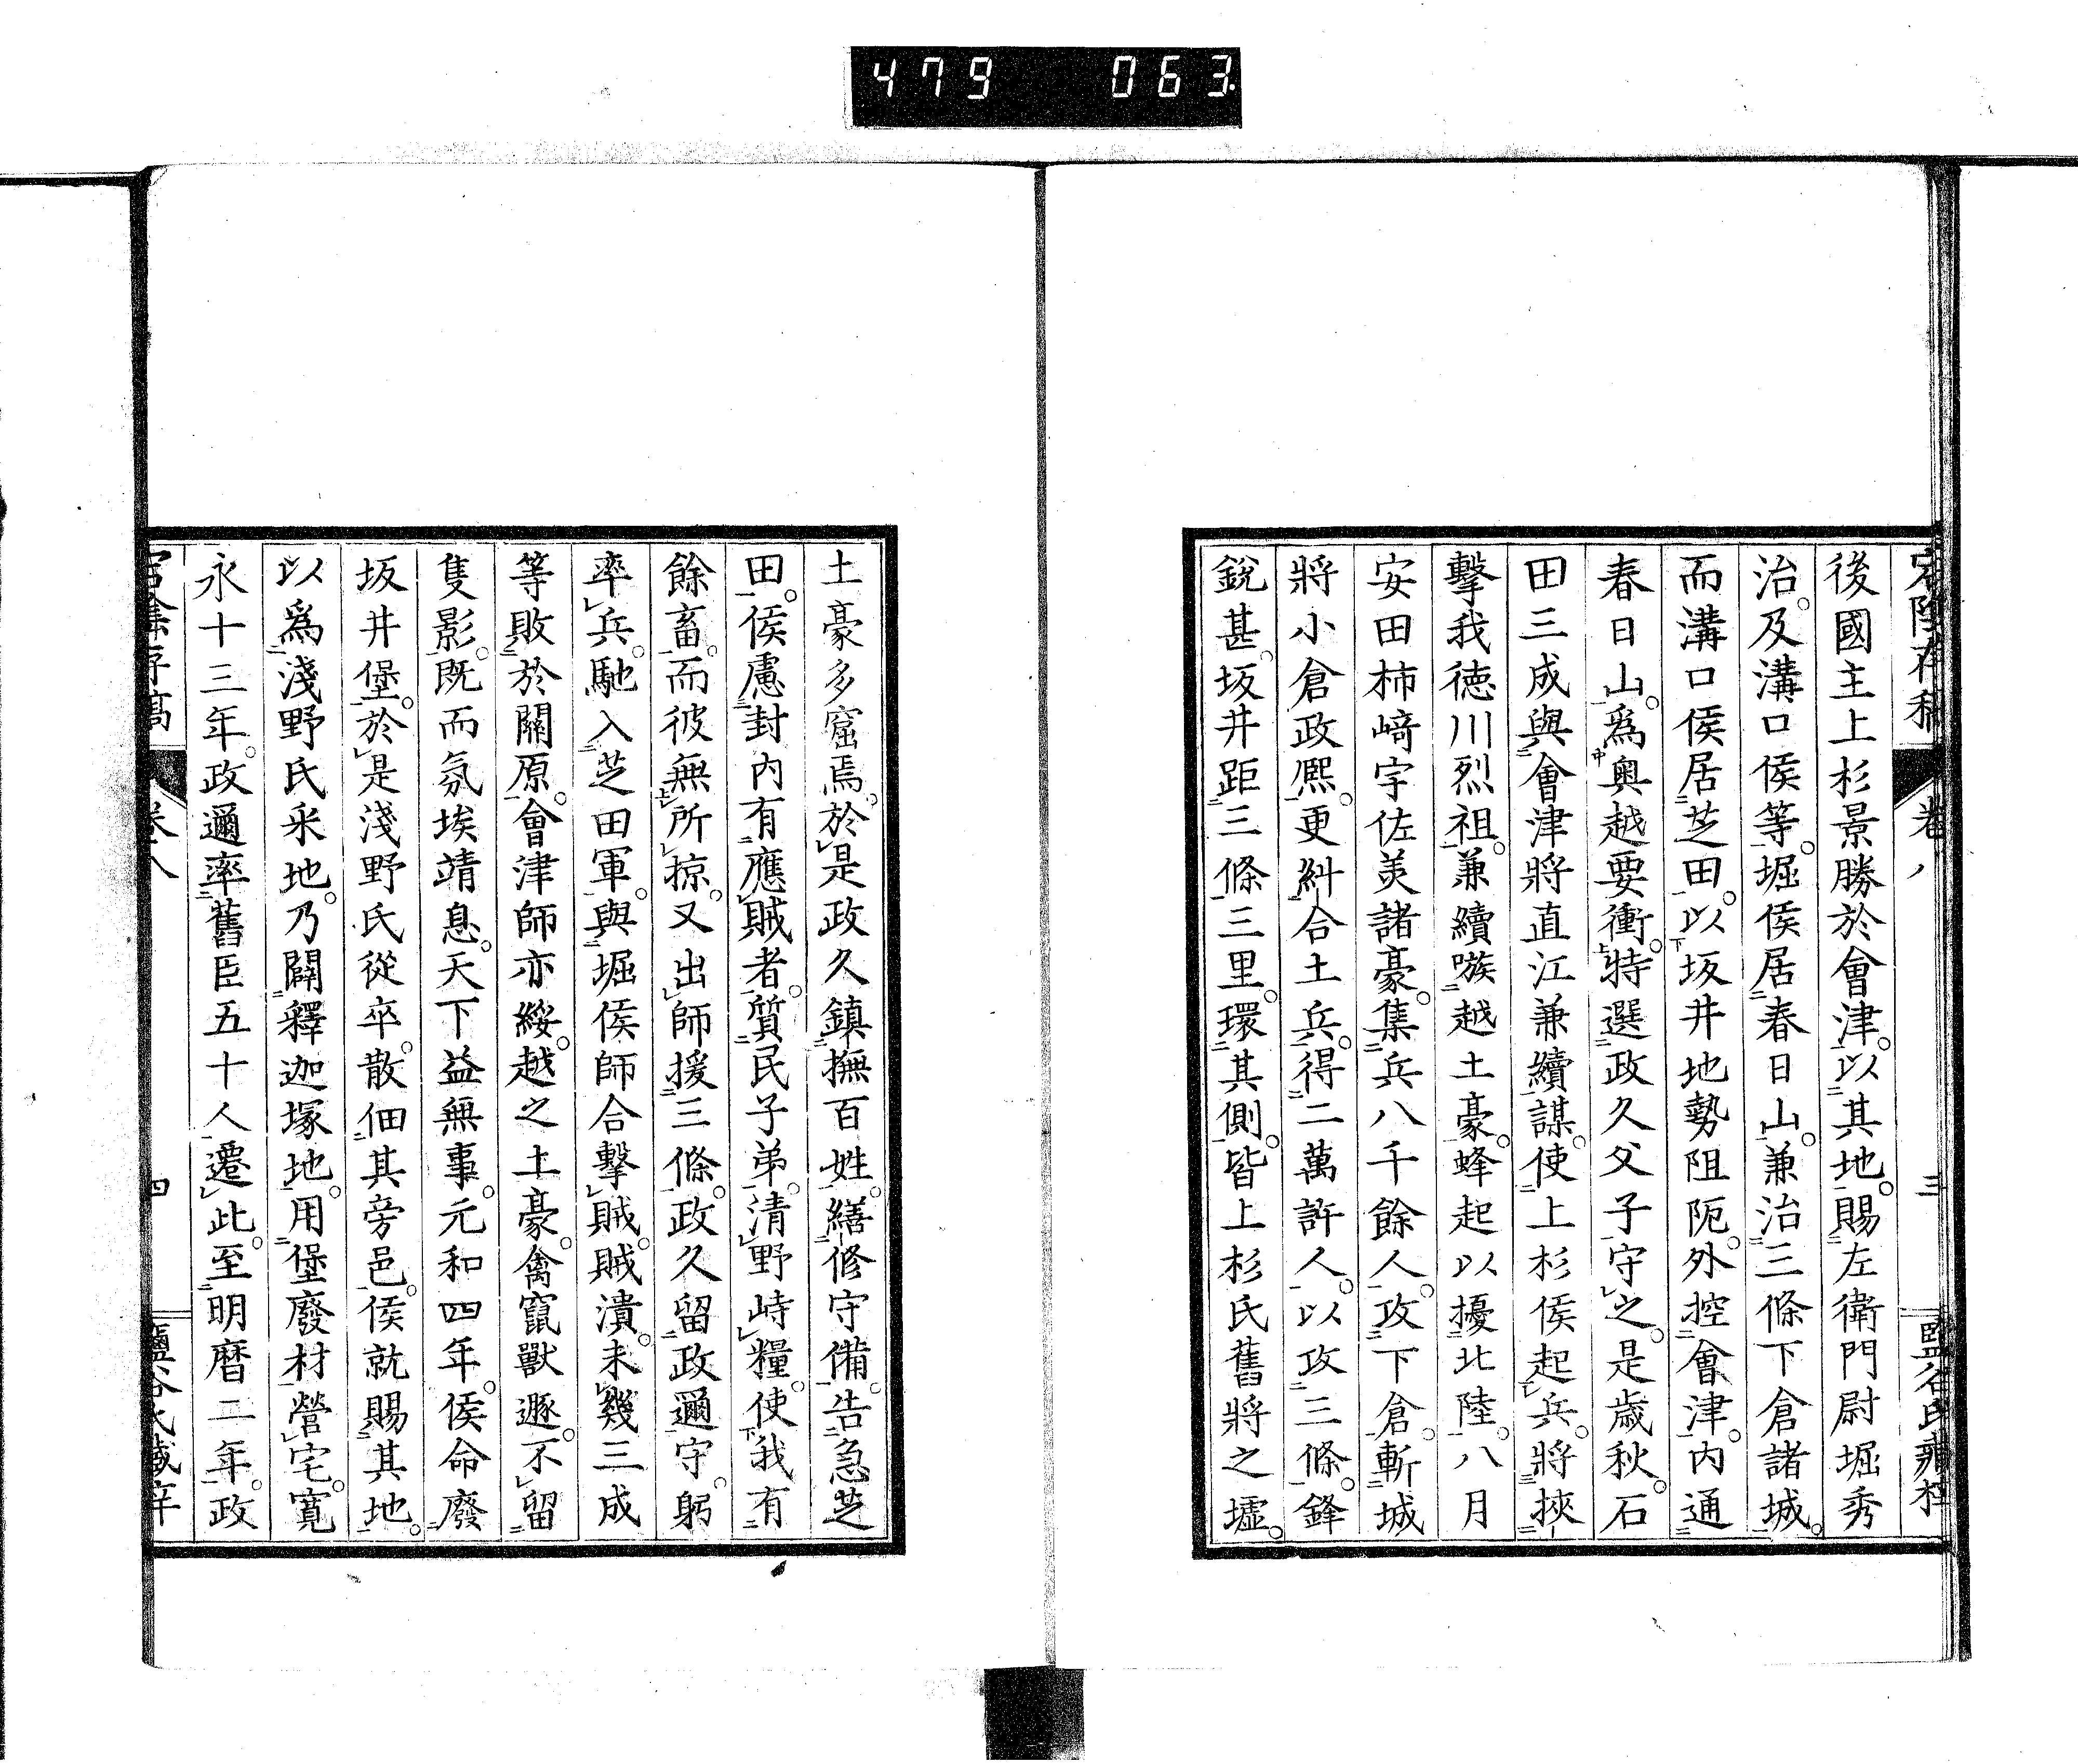 479 063
後國主上杉景勝於會津。以其地。賜左衛門尉堀秀
治。及溝口侯等。堀侯居春日山。兼治三條下倉諸城。
而溝口侯居芝田。以坂井地勢阻阨。外控會津。内通
春日山。爲奥越要衝。特選政久父子守之。是歳秋。石
田三成與會津將直江兼續謀。使上杉侯起兵。將挾
擊我徳川烈祖。兼續嗾越土豪。蜂起以擾北陸。八月
安田柿﨑宇佐美諸豪。集兵八千餘人。攻下倉。斬城
將小倉政凞。更糾合土兵。得二萬許人。以攻三條。鋒
銳甚。坂井距三條三里。環其側。皆上杉氏舊將之墟。
卷八
三
土豪多窟焉。於是政久鎮撫百姓。繕修守備。告急芝
田。侯慮封内有應賊者。質民子弟。清野峙糧。使我有
餘畜。而彼無所掠。又出師援三條。政久留政邇守。躬
率兵。馳入芝田軍。與堀侯師合擊賊。賊潰。未幾三成
等敗於關原。會津師亦綏。越之土豪。禽竄獸遯。不留
隻影。既而氛埃靖息。天下益無事。元和四年。侯命廢
坂井堡。於是淺野氏從卒。散佃其旁邑。侯就賜其地。
以爲淺野氏釆地。乃闢釋迦塚地。用堡廢材營宅。寛
永十三年。政邇率舊臣五十人遷此。至明暦二年。政
四